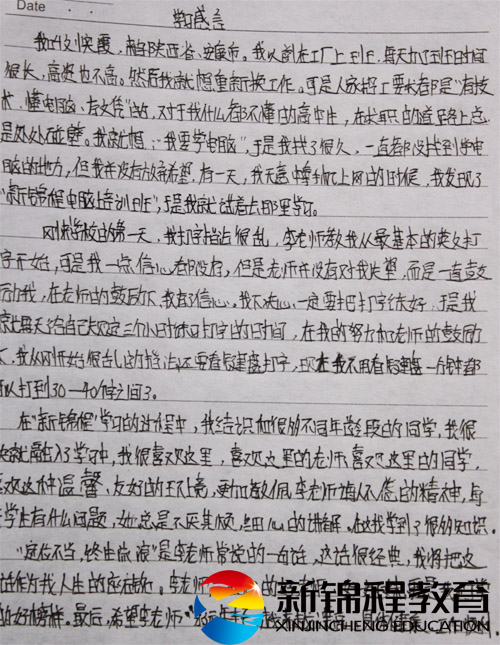 Date
学习感言
我叫 侠霞，来自陕西省安康市。我以前在工厂上班，每天加班时间
很长，高资也不高。然后我就想重新换工作。可是人家招工要求都是“有技
术，懂电脑，有文凭”的，对于我什么都不懂的高中生，在求职的道路上总
是处处碰壁。我就想：“我要学电脑”，于是我找了很久，一直都没找到学电
脑的地方，但我并没有放弃希望，有一天，我无意中手机上网的时候，我发现了
“新锦程电脑培训班”，于是我就试着去那里学习。
刚来学校的第一天，我打字指法很乱，李老师教我从最基本的英文打
字开始，可是我一点信心都没有，但是老师并没有对我失望，而是一直鼓
励我，在老师的鼓励下，我有了信心。我下决心一定要把打字练好，于是我
就每天给自己规定三个小时练习打字的时间，在我的努力和老师的鼓励
下，我从刚开始很乱的指法还要看键盘打字，现在我不用看键盘一分钟都
可以打到30—40个之间了。
在“新锦程”学习的过程中，我结识和很多不同年龄段的同学，我很
快就融入了学习中，我很喜欢这里，喜欢这里的老师，喜欢这里的同学，
喜欢这种温馨、友好的环境，更加敬佩李老师诲人不倦的精神，每
学生有什么问题，她总是不厌其烦，细心的讲解。在这我学到了很多知识。
是李老师常说的一句话，这话很经典，我将把这
话作为我人生的座右铭。李老师
的好榜样。最后，希望李老师“永远年轻
新锦程教育
XINJINCHENG EDUCATION